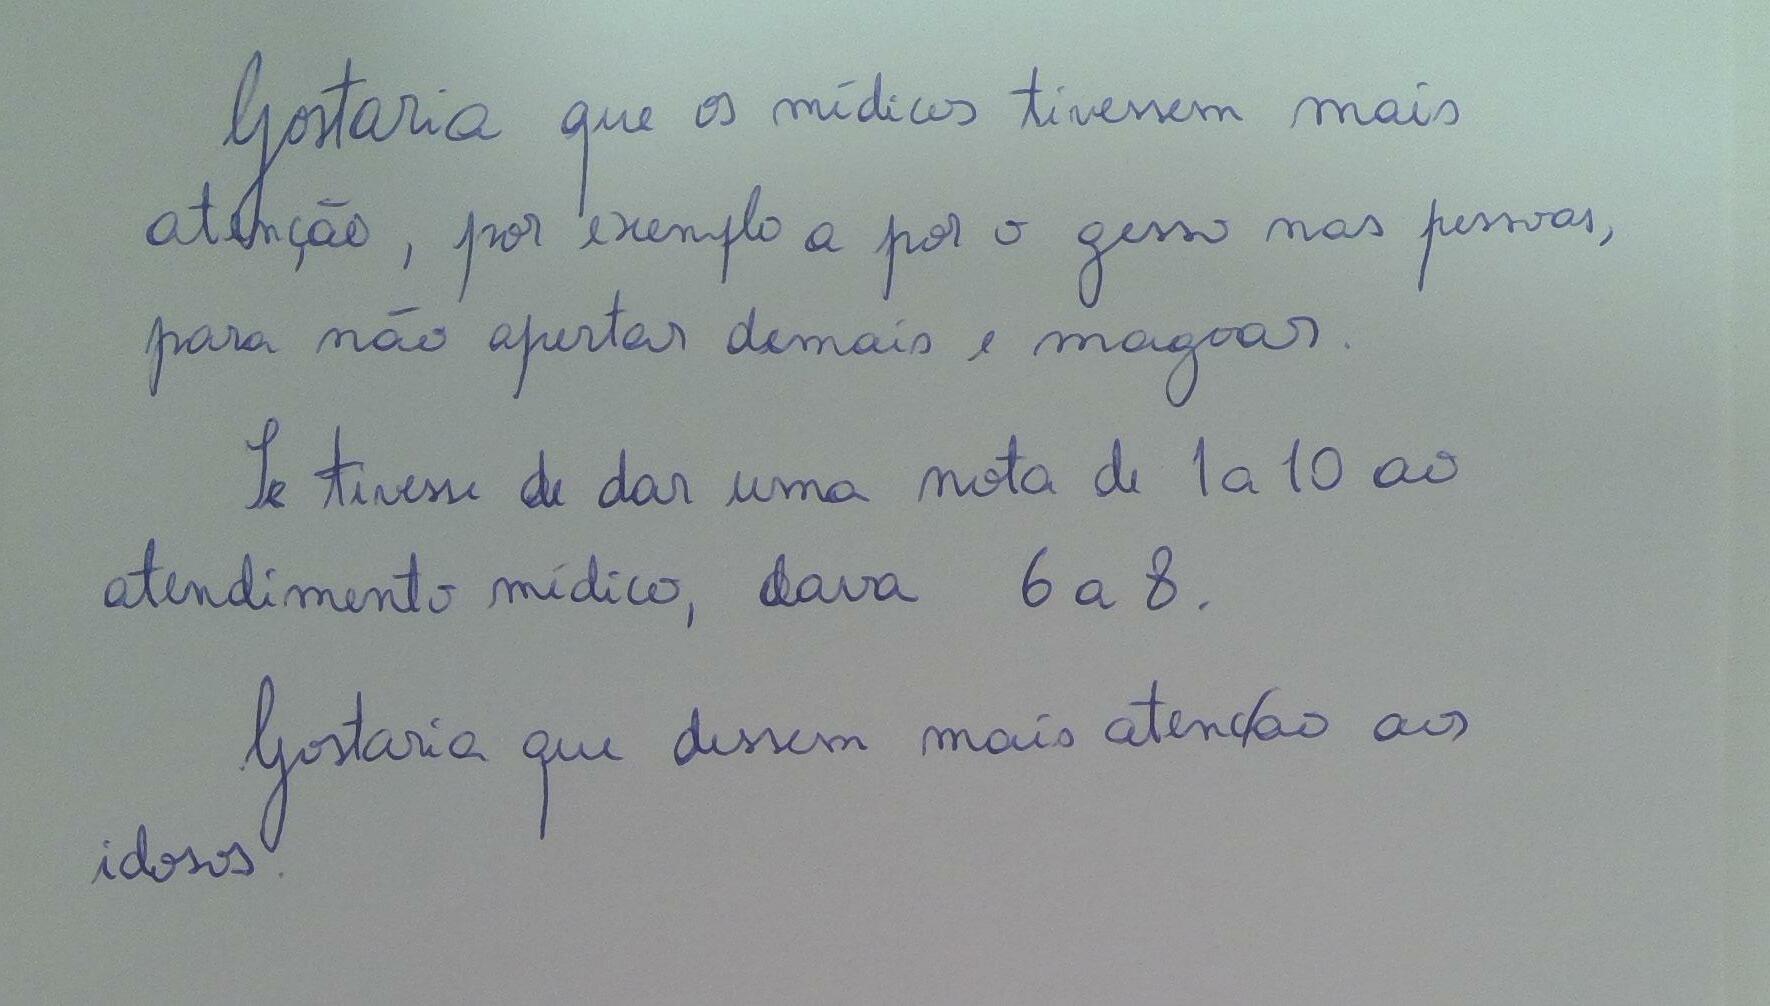 Gostaria que os médicos tivessem mais
atenção, por exemplo a por o gesso nas pessoas,
para não apertar demais e magoar.
Se tivesse de dar uma nota de 1 a 10 ao
atendimento médico, dava 6 a 8.
Gostaria que dessem mais atenção aos
idosos.